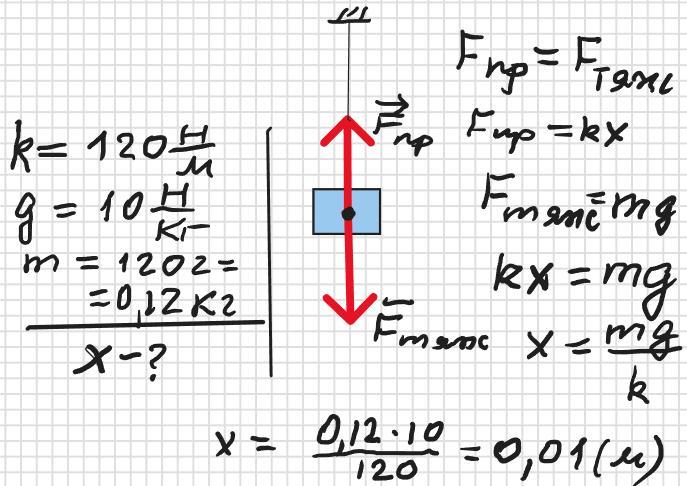 k = 120 Н/м
g = 10 Н/кг
m = 120г =
= 0,12 кг
x - ?
F пр
F тяж
F пр = F тяж
F пр = kx
F тяж = mg
kx = mg
x = mg/k
x = 0,12 · 10 / 120 = 0,01 (м)